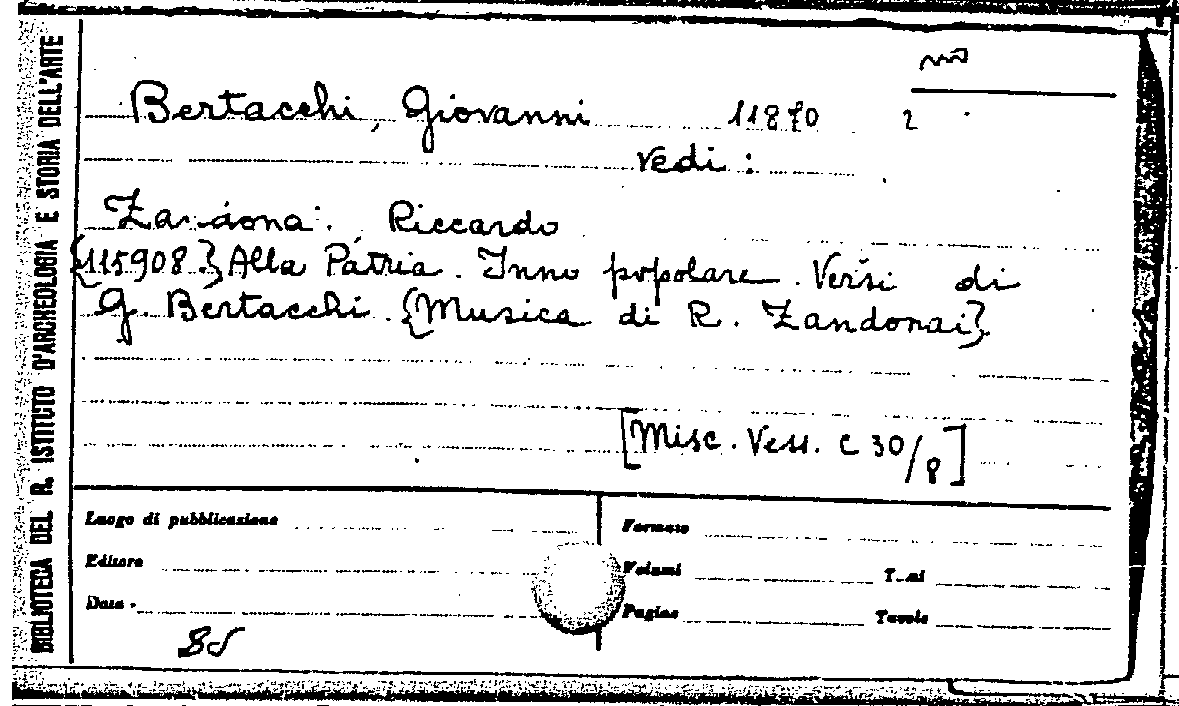 BIBLIOTECA DEL R. ISTITUTO D'ARCHEOLOGIA E STORIA DELL'ARTE
Bertacchi, Giovanni 11870 2
vedi :
Zandonai. Riccardo
{115908.} Alla Patria. Inno popolare. Versi di
G. Bertacchi. {Musica di R. Zandonai}
[Misc. Vess. C 30/8]
Luogo di pubblicazione
Formato
Editore
Volumi
Data
Pagine
Tavole